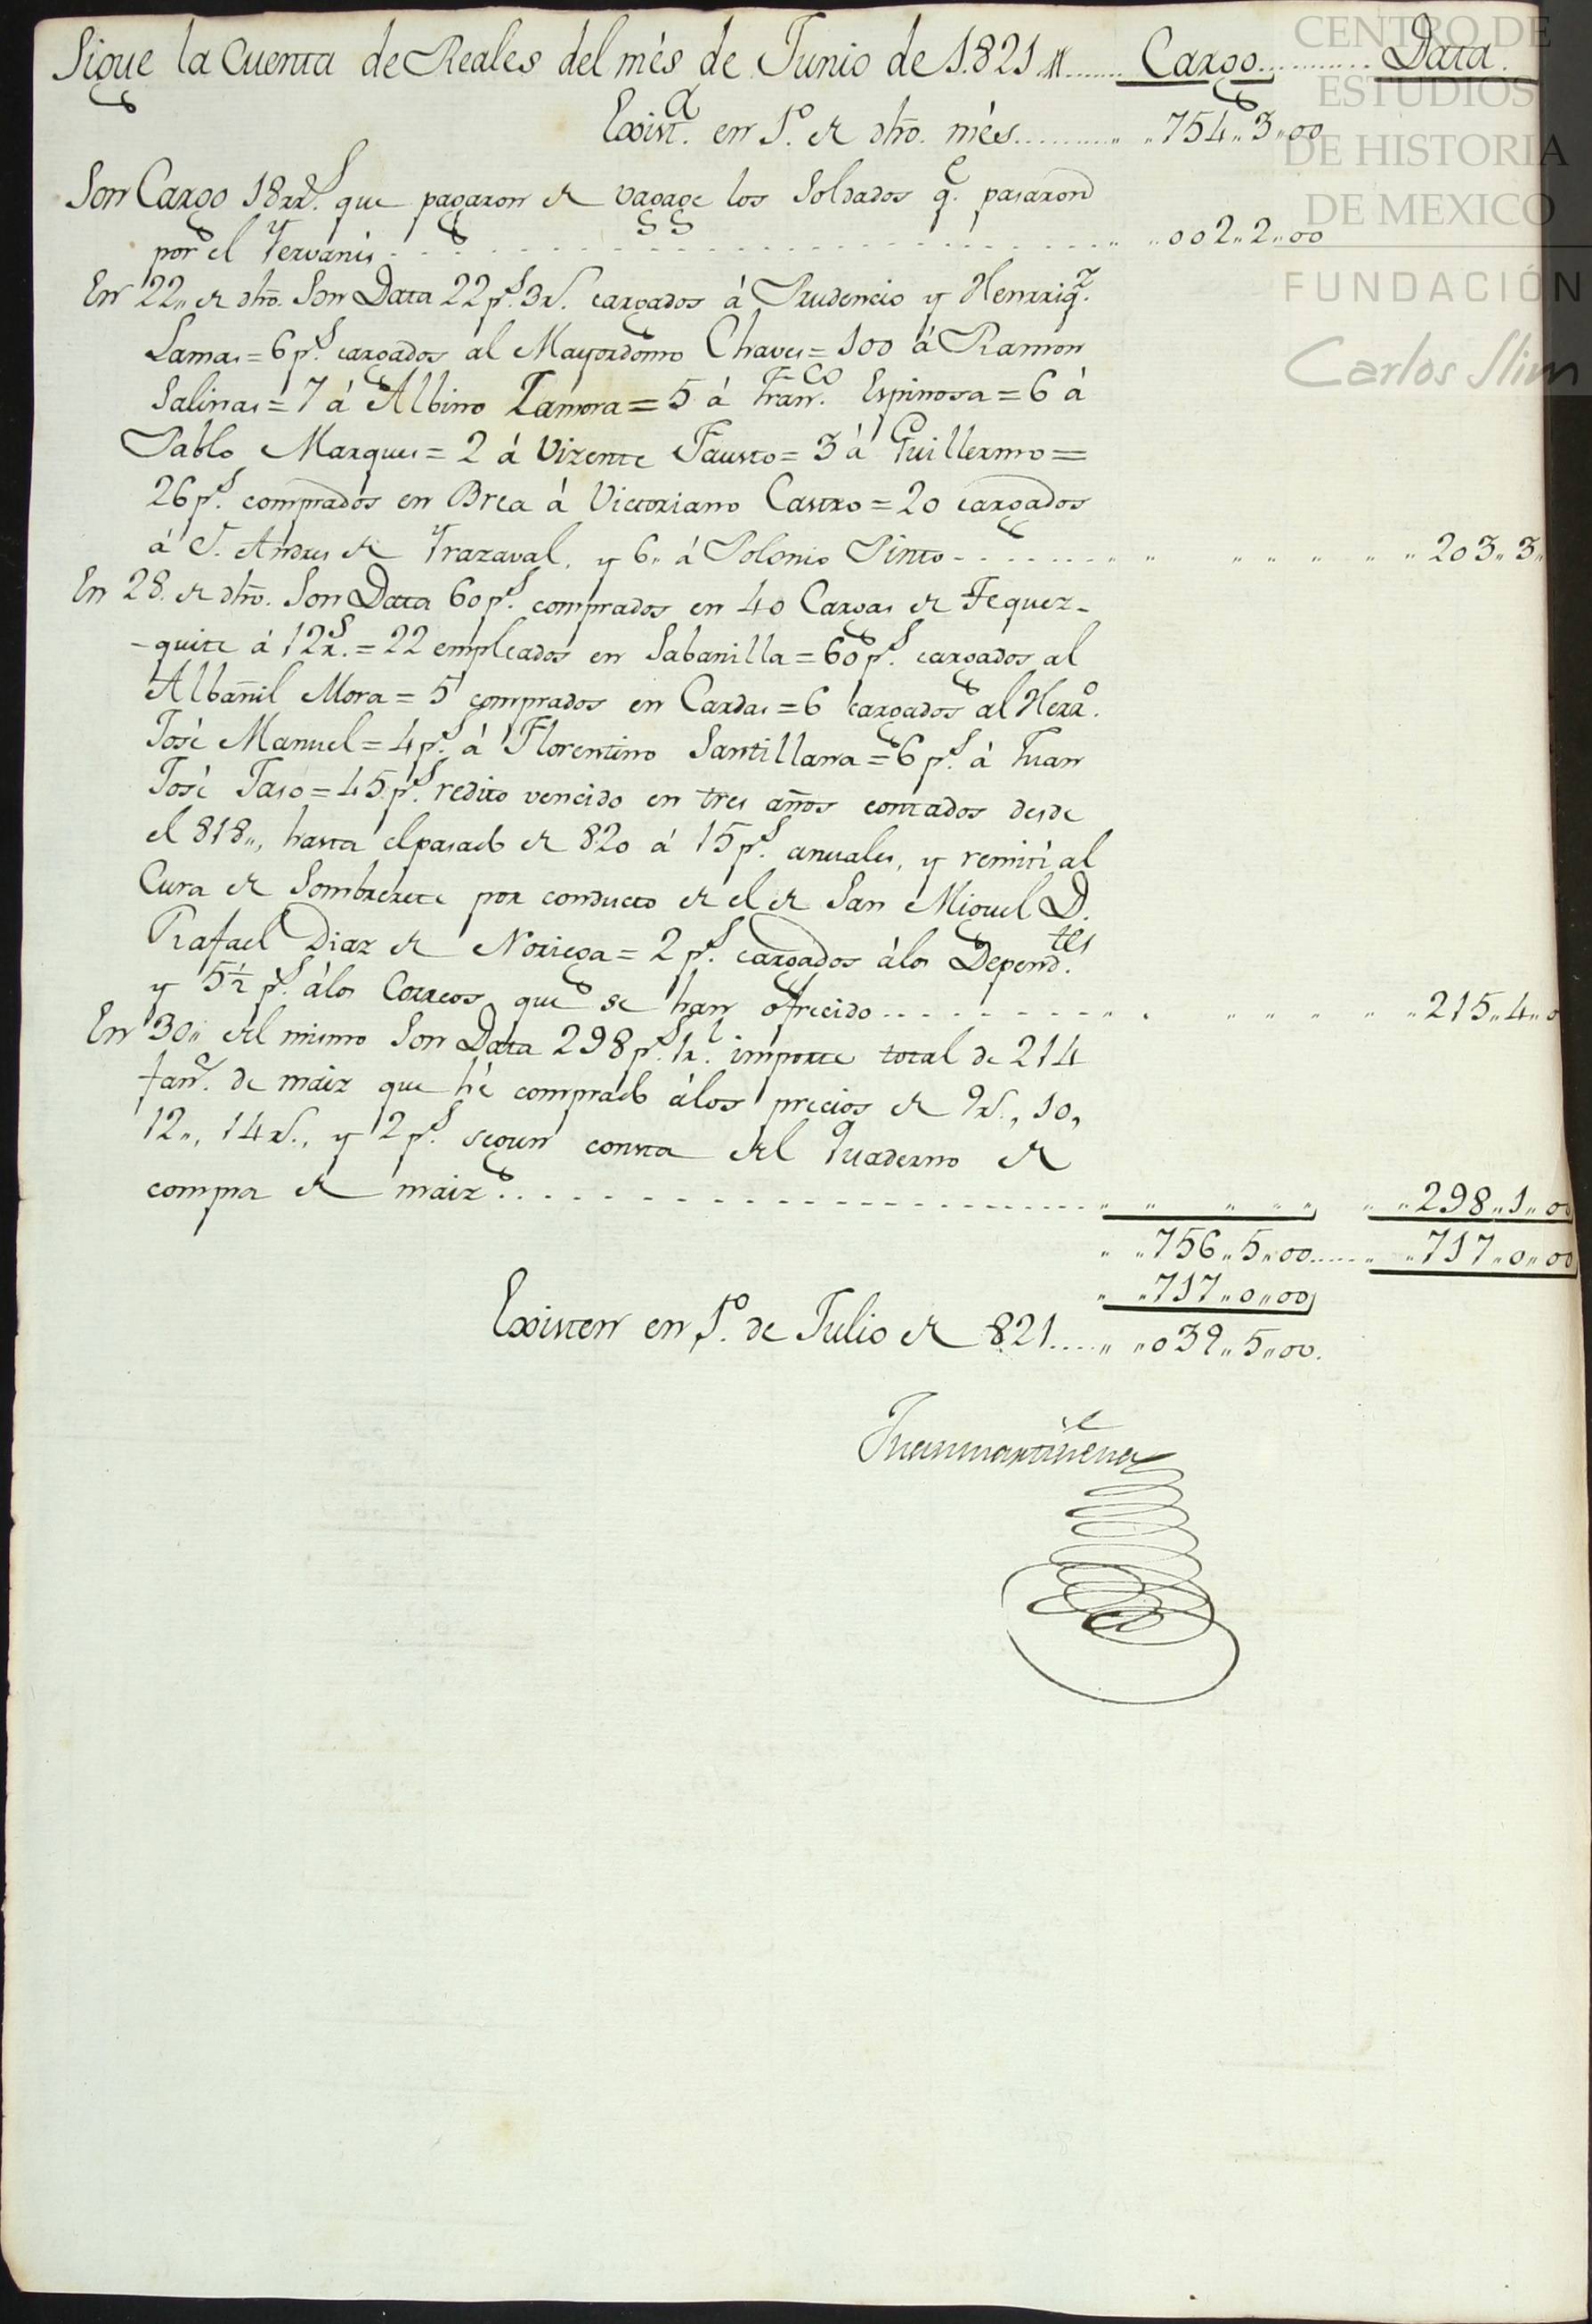 Sigue la Cuenta de Reales del més de Junio de 1.821 // Cargo Data.
Exist.a en 1.o de dho. més ,, ,,754,,3,,00
Son Cargo 18 rr.s que pagaron de vagage los Soldados q.e pasaron
por el Tervanis ,, ,,002,,2,,00
En 22,, de dho. Son Data 22 p.s 3 r.s cargados á Prudencio y Henrriq.z
Lamas = 6 p.s cargados al Mayordomo Chaves = 100 á Ramon
Salinas = 7 á Albino Zamora = 5 á Fran.co Espinosa = 6 á
Pablo Marques = 2 á Vizente Fausto = 3 á Guillermo =
26 p.s comprados en Brea á Victoriano Castro = 20 cargados
á S. Andres de Trazaval, y 6,, á Polonio Pinto ,, ,, ,, ,, ,, ,, ,, ,,203,,3,,
En 28. de dho. Son Data 60 p.s comprados en 40 Cargas de Tequez-
-quite á 12 r.s = 22 empleados en Sabanilla = 60 p.s cargados al
Albañil Mora = 5 comprados en Cardas = 6 cargados al Herr.o
José Manuel = 4 p.s á Florentino Santillana = 6 p.s á Juan
José Jaso = 45 p.s redito vencido en tres años contados desde
el 818,,, hasta el pasado de 820 á 15 p.s anuales, y remiti al
Cura de Sombrerete por conducto de el de San Miguel D.
Rafael Diaz de Noriega = 2 p.s cargados álos Depend.tes
y 5½ p.s álos Correos que se han ofrecido ,, ,, ,, ,, ,, ,, ,,215,,4,,0
En 30,, del mismo Son Data 298 p.s 1 r.l importe total de 214
fan.s de maiz que hé comprado álos precios de 9 r.s, 10,
12,,, 14 r.s, y 2 p.s segun consta del Quaderno de
compra de maiz ,, ,, ,, ,, ,, ,, ,,298,,1,,00
,, ,,756,,5,,00 ,, ,,717,,0,,00
,, ,,717,,0,,00
Existen en 1.o de Julio de 821 ,, ,,039,,5,,00.
Juanmartiñena
CENTRO DE
ESTUDIOS
DE HISTORIA
DE MEXICO
FUNDACIÓN
Carlos Slim